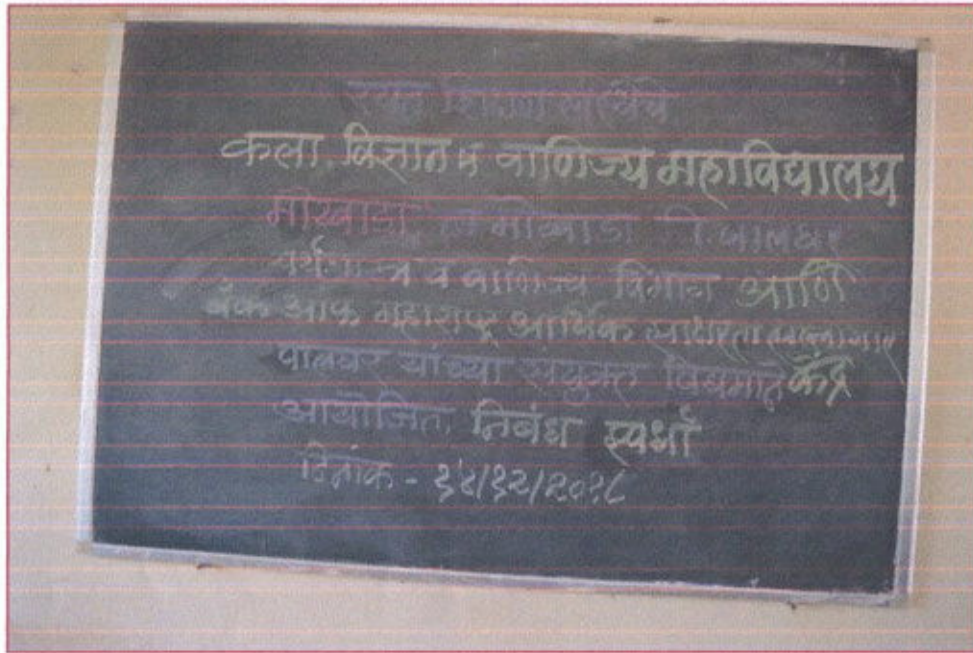 रयत शिक्षण संस्थेचे
कला, विज्ञान व वाणिज्य महाविद्यालय
मोखाडा ता मोखाडा जि. पालघर
अर्थशास्त्र व वाणिज्य विभाग आणि
बँक ऑफ महाराष्ट्र आर्थिक साक्षरता
पालघर यांच्या संयुक्त विद्यमाने केंद्र
आयोजित, निबंध स्पर्धा
दिनांक - १४/१२/२०१८